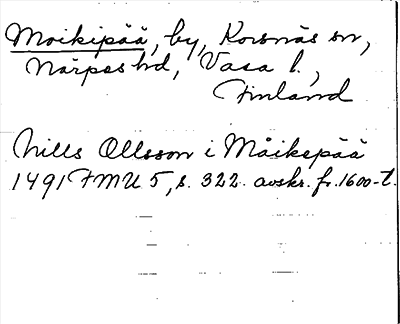 Moikipää, by, Korsnäs sn,
Närpes hd, Vasa l.,
Finland
Nills Ollsson i Måikepää
1491 FMU 5, s. 322. avskr. fr. 1600-t.